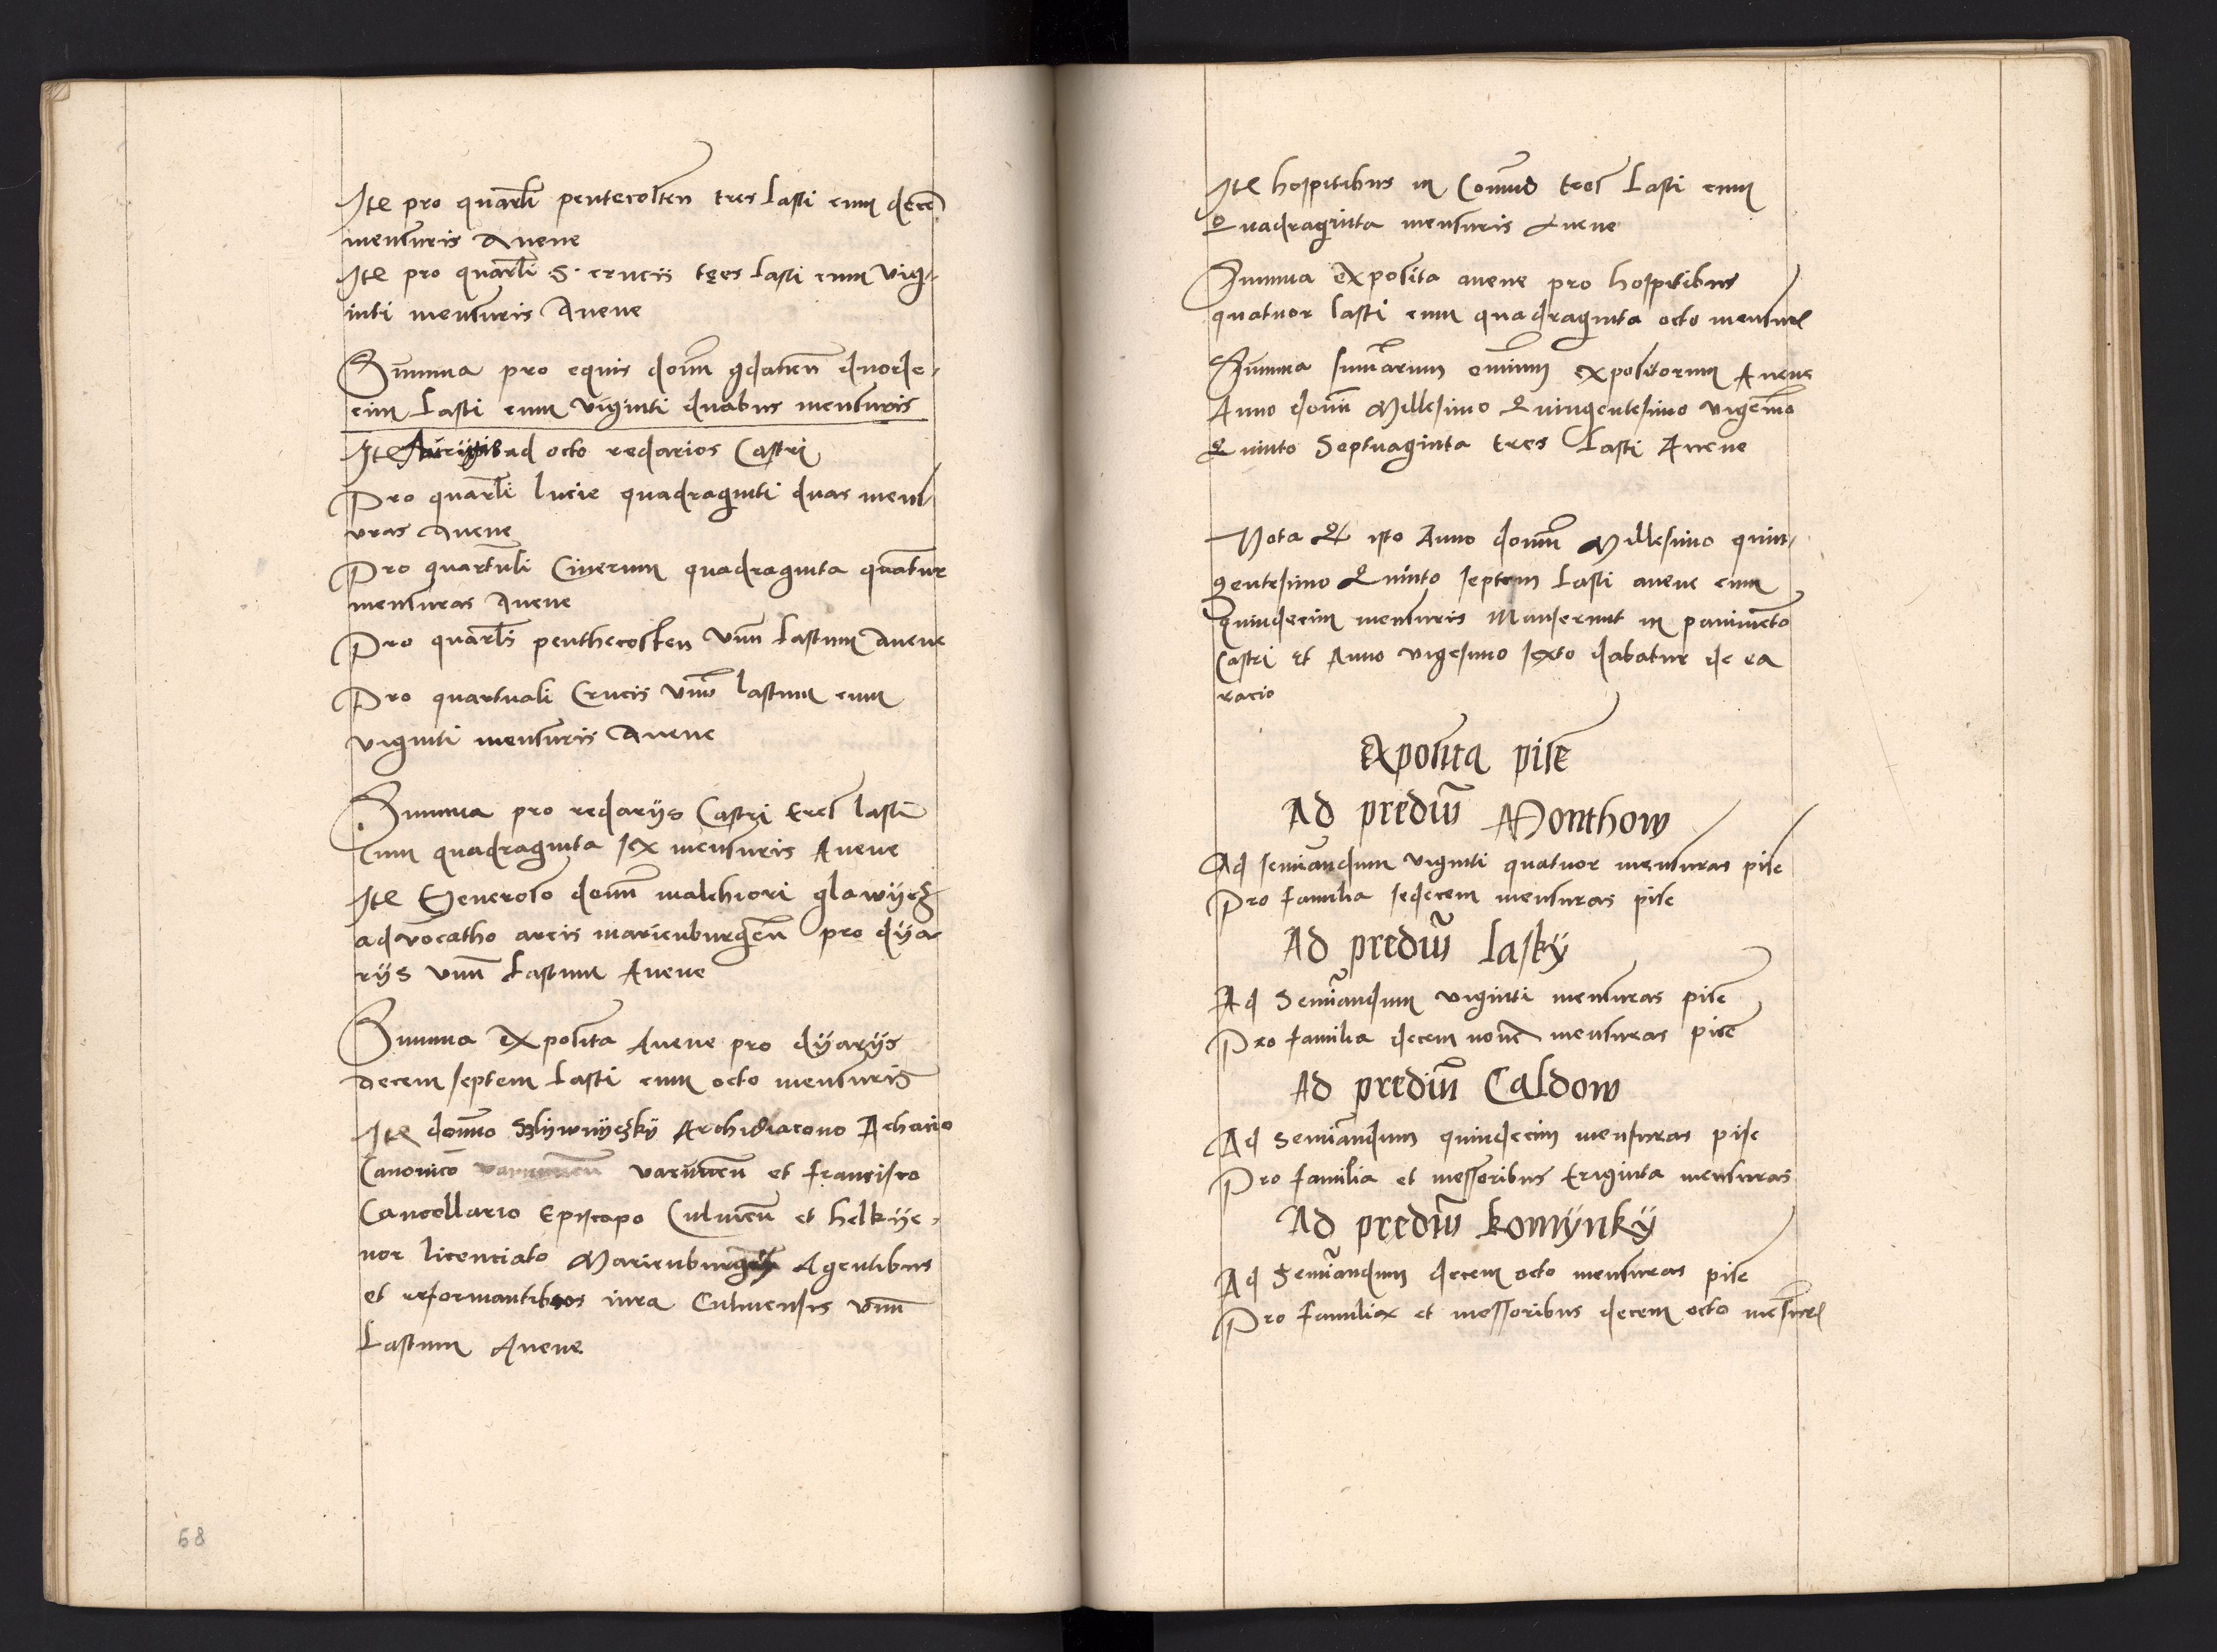 Ite pro quartli pentecosten tres Lasti cum dece
mensuris Avene
Ite pro quartli S. crucis tres Lasti cum vig-
inti mensuris Avene
Summa pro equis domi gdanen duode-
cim Lasti cum viginti duabus mensuris
Ite Aurigis ad octo redarios Castri
Pro quartli lucie quadraginti duas mens
uras Avene
Pro quartuli Cinerum quadraginta quatur
mensuras Avene
Pro quartli penthecosten Unu Lastum Avene
Pro quartuali Crucis Unu lastum cum
viginti mensuris Avene
Summa pro redariis Castri tres lasti
Cum quadraginta sex mensuris Avene
Ite Generoso domi malchiori glawijcz
advocatho arcis marienburgen pro dya-
riis Unu Lastum Avene
Summa Exposita Avene pro dyariis
Decem septem Lasti cum octo mensuris
Ite domino Archidiacono Achacio
Canonico varmien et francisco
Cancellario Episcopo Culmen et helkye-
nor licenciato Marienburgen Agentibus
et reformantibus iura Culmensis Unu
Lastum Avene
68
Ite hospitibus in Comuni tres Lasti cum
Quadraginta mensuris Avene
Summa Exposita avene pro hospitibus
quatuor lasti cum quadraginta octo mensur
Summa sumarum omnium expositorum Avene
Anno domi Millesimo Quingentesimo vigesimo
Quinto Septuaginta tres Lasti Avene
Nota Q isto Anno domi Millesimo quin-
gentesimo Quinto septem Lasti avene cum
quindecim mensuris Manserunt in pavimeto
Castri et Anno vigesimo sexto dabatur de ea
racio
Exposita pise
Ad prediu Monthow
Ad seminandum viginti quatuor mensuras pise
Pro familia sedecem mensuras pise
Ad prediu Lasky
Ad Seminandum viginti mensuras pise
Pro familia decem nove mensuras pise
Ad prediu Caldow
Ad Seminandum quindecim mensuras pise
Pro familia et messoribus triginta mensuras
Ad prediu komynky
Ad Seminandum decem octo mensuras pise
Pro familia et messoribus decem octo mesur